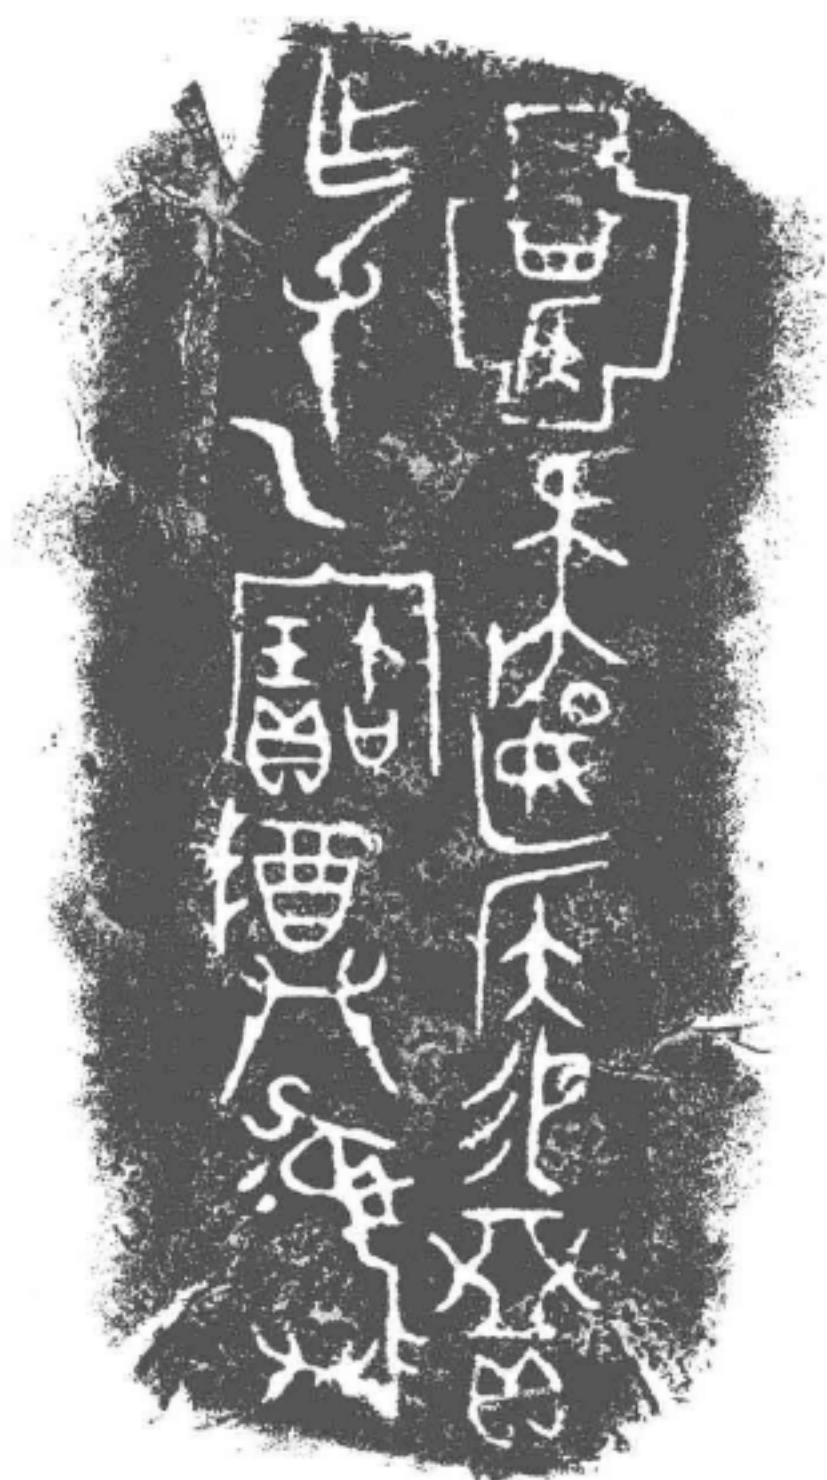 亞㠱侯矣匽侯易亞貝
乍父乙寶尊彝